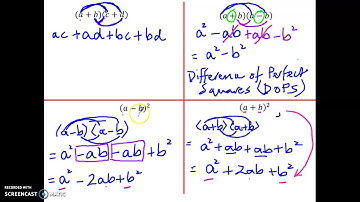 (a + b)(c + d)
ac + ad + bc + bd
(a + b)(a − b)
a² − ab + ab − b²
= a² − b²
Difference of Perfect
Squares (DOPS)
(a − b)²
(a−b)(a−b)
= a² −ab −ab + b²
= a² − 2ab + b²
(a + b)²
(a+b)(a+b)
= a² + ab + ab + b²
= a² + 2ab + b²
RECORDED WITH
SCREENCAST-O-MATIC